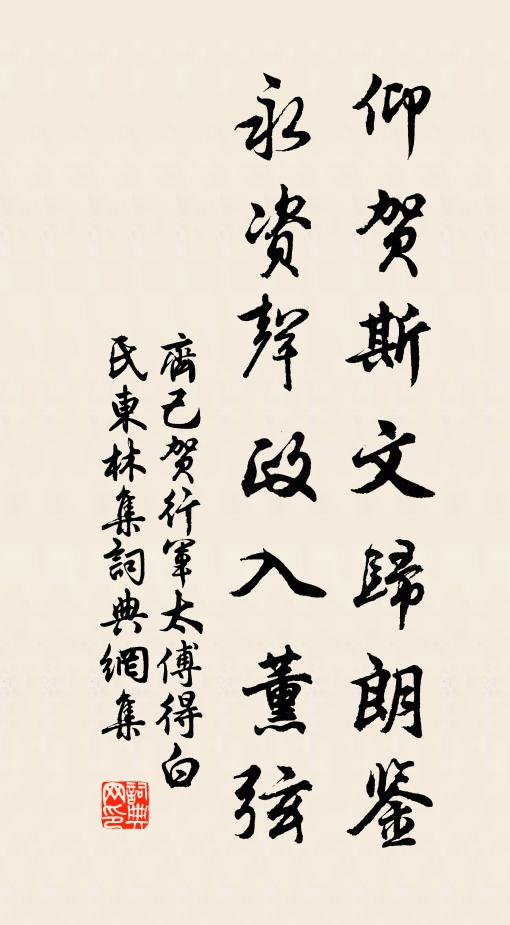 仰贺斯文歸朗鉴
永资聲政入薰弦
齊己贺行軍太傅得白
氏東林集詞典網集
詞典网印